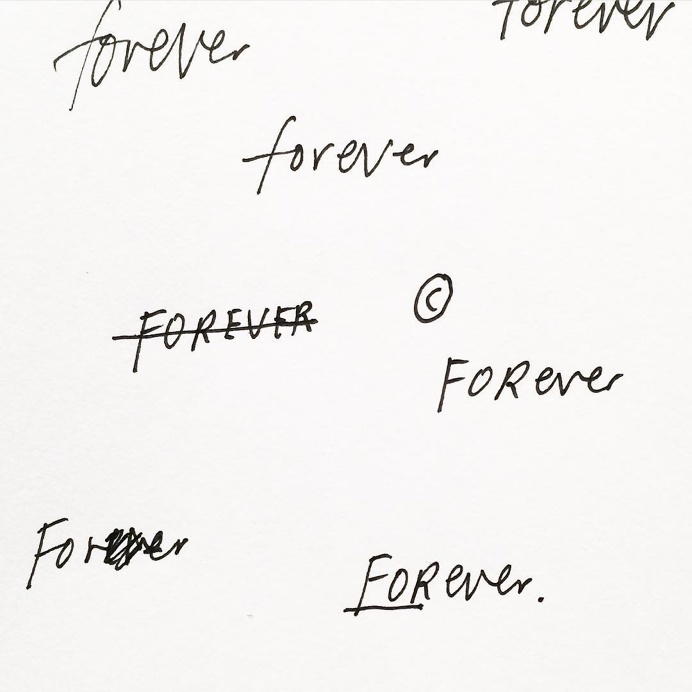 forever
forever
forever
FOREVER
©
FORever
Forever
FORever.